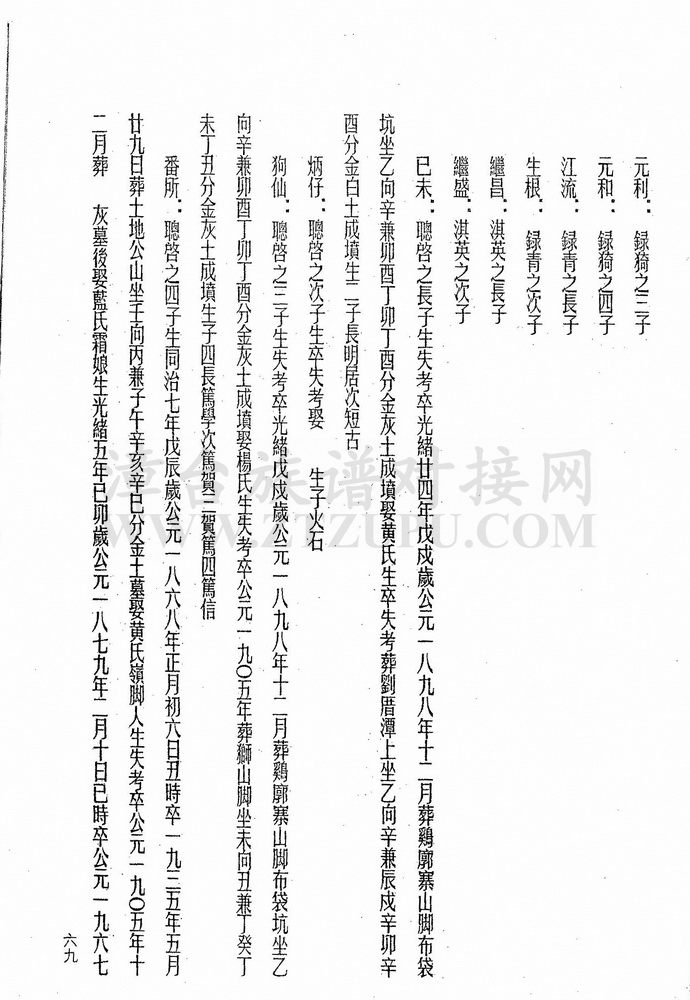 元利：録猗之三子
元和：録猗之四子
江流：録青之長子
生根：録青之次子
繼昌：淇英之長子
繼盛：淇英之次子
巳未：聰啓之長子生失考卒光緒廿四年戊戍歲公元一八九八年十二月葬鷄廓寨山脚布袋
坑坐乙向辛兼卯酉丁卯丁酉分金灰土成墳娶黄氏生卒失考葬劉厝潭上坐乙向辛兼辰戍辛卯辛
酉分金白土成墳生二子長明居次短古
炳仔：聰啓之次子生卒失考娶　生子火石
狗仙：聰啓之三子生失考卒光緒戊戍歲公元一八九八年十二月葬鷄廓寨山脚布袋坑坐乙
向辛兼卯酉丁卯丁酉分金灰土成墳娶楊氏生失考卒公元一九〇五年葬獅山脚坐未向丑兼丁癸丁
未丁丑分金灰土成墳生子四長篤學次篤賀三賀篤四篤信
番所：聰啓之四子生同治七年戊辰歲公元一八六八年正月初六日丑時卒一九三五年五月
廿九日葬土地公山坐壬向丙兼子午辛亥辛巳分金土墓娶黄氏嶺脚人生失考卒公元一九〇五年十
二月葬　灰墓後娶藍氏霜娘生光緒五年已卯歲公元一八七九年二月十日巳時卒公元一九六七
六九
漳台族谱对接网
WWW.ZTZUPU.COM